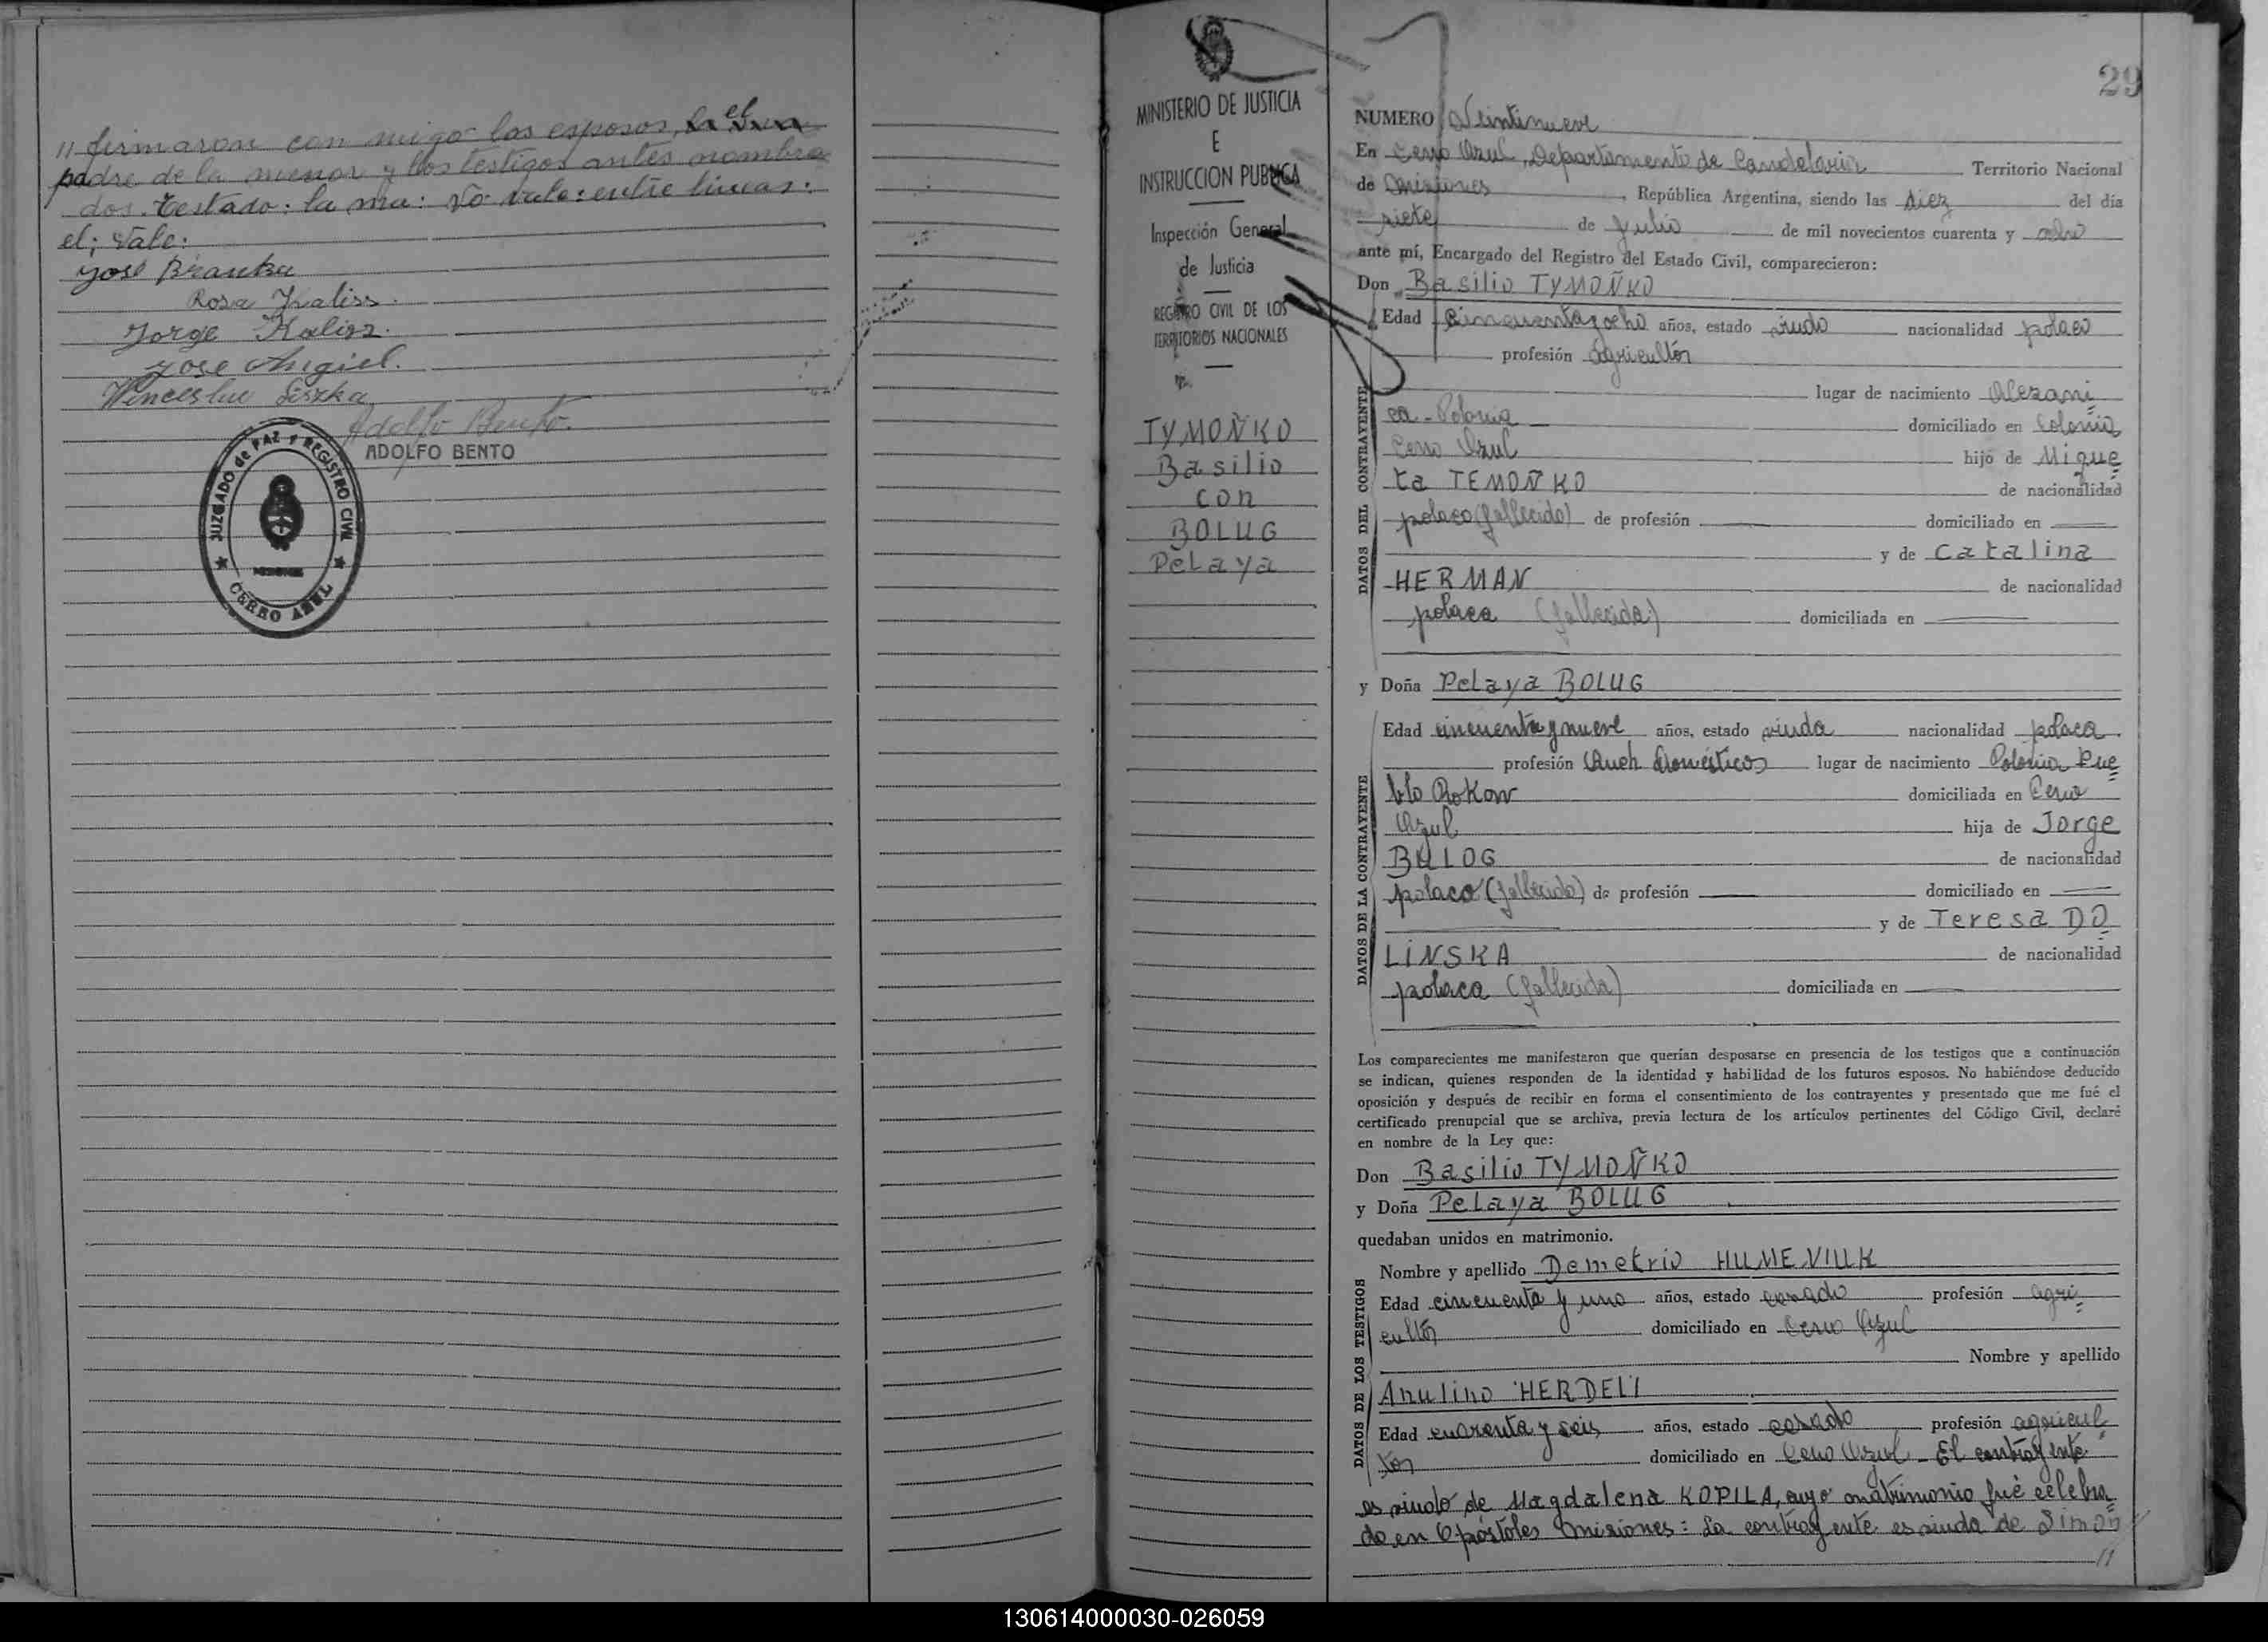 // firmaron con migo los esposos, la el ma
padre de la menor y los testigos antes nombra
dos. Testado: la ma: No vale: entre lineas:
el; Vale:
José Branka
Rosa Kaliss.
Jorge Kalisz.
Jose Angiel.
Adolfo Bento.
ADOLFO BENTO
JUZGADO de PAZ Y REGISTRO CIVIL
MISIONES
CERRO AZUL
MINISTERIO DE JUSTICIA
E
INSTRUCCION PUBLICA
Inspección General
de Justicia
REGISTRO CIVIL DE LOS
TERRITORIOS NACIONALES
TYMOÑKO
Basilio
con
BOLUG
Pelaya
29
NUMERO Veintinueve
En Cerro Azul, Departamento de Candelaria Territorio Nacional
de Misiones, República Argentina, siendo las diez del día
siete de Julio de mil novecientos cuarenta y ocho
ante mí, Encargado del Registro del Estado Civil, comparecieron:
Don Basilio TYMOÑKO
DATOS DEL CONTRAYENTE
Edad cincuenta y ocho años, estado viudo nacionalidad polaco
profesión agricultor
lugar de nacimiento
ca - Polonia domiciliado en Colonia
Cerro Azul hijo de Migue
ta TEMOÑKO de nacionalidad
polaco (fallecido) de profesión domiciliado en
y de Catalina
HERMAN de nacionalidad
polaca (fallecida) domiciliada en
y Doña Pelaya BOLUG
DATOS DE LA CONTRAYENTE
Edad cincuenta y nueve años, estado viuda nacionalidad polaca
profesión Queh. Domésticos lugar de nacimiento Polonia Pue
blo Rokow domiciliada en Cerro
Azul hija de Jorge
BULOG de nacionalidad
polaco (fallecido) de profesión domiciliado en
y de Teresa DO
LINSKA de nacionalidad
polaca (fallecida) domiciliada en
Los comparecientes me manifestaron que querían desposarse en presencia de los testigos que a continuación
se indican, quienes responden de la identidad y habilidad de los futuros esposos. No habiéndose deducido
oposición y después de recibir en forma el consentimiento de los contrayentes y presentado que me fué el
certificado prenupcial que se archiva, previa lectura de los artículos pertinentes del Código Civil, declaré
en nombre de la Ley que:
Don Basilio TYMOÑKO
y Doña Pelaya BOLUG
quedaban unidos en matrimonio.
DATOS DE LOS TESTIGOS
Nombre y apellido Demetrio HUMENIUK
Edad cincuenta y uno años, estado casado profesión agri
cultor domiciliado en Cerro Azul
Nombre y apellido
Anulino HERDELI
Edad cuarenta y seis años, estado casado profesión agricul
tor domiciliado en Cerro Azul - El contrayente
es viudo de Magdalena KOPILA, cuyo matrimonio fué celebra
do en Apóstoles Misiones: La contrayente es viuda de Simón
//
130614000030-026059